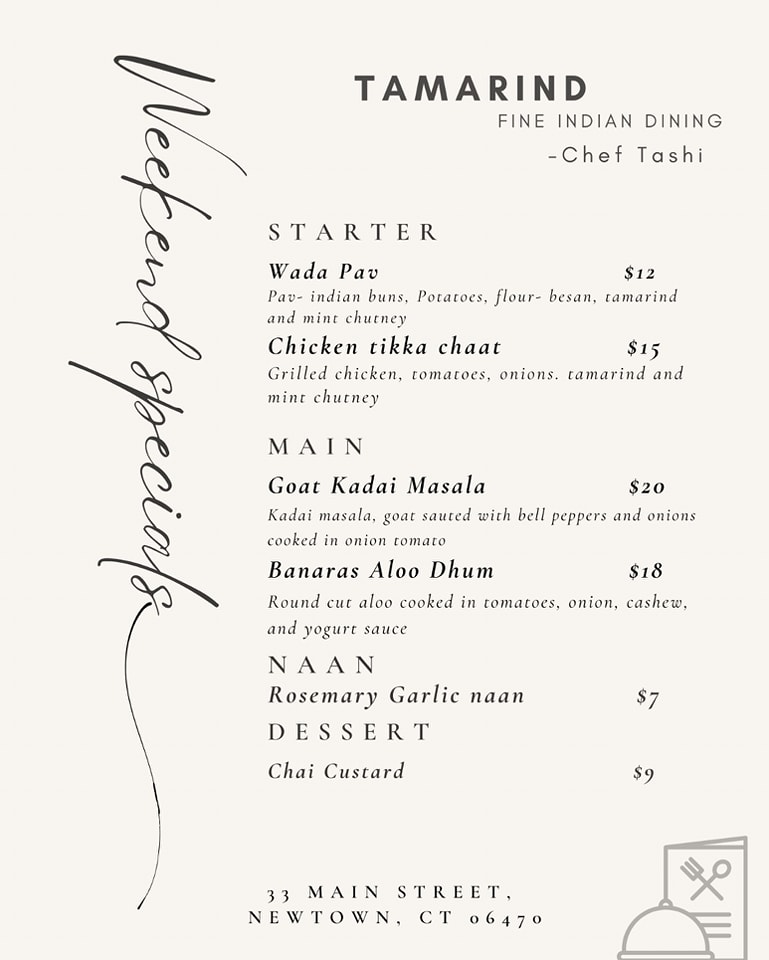 Weekend specials
TAMARIND
FINE INDIAN DINING
-Chef Tashi
STARTER
Wada Pav $12
Pav- indian buns, Potatoes, flour- besan, tamarind
and mint chutney
Chicken tikka chaat $15
Grilled chicken, tomatoes, onions. tamarind and
mint chutney
MAIN
Goat Kadai Masala $20
Kadai masala, goat sauted with bell peppers and onions
cooked in onion tomato
Banaras Aloo Dhum $18
Round cut aloo cooked in tomatoes, onion, cashew,
and yogurt sauce
NAAN
Rosemary Garlic naan $7
DESSERT
Chai Custard $9
33 MAIN STREET,
NEWTOWN, CT 06470